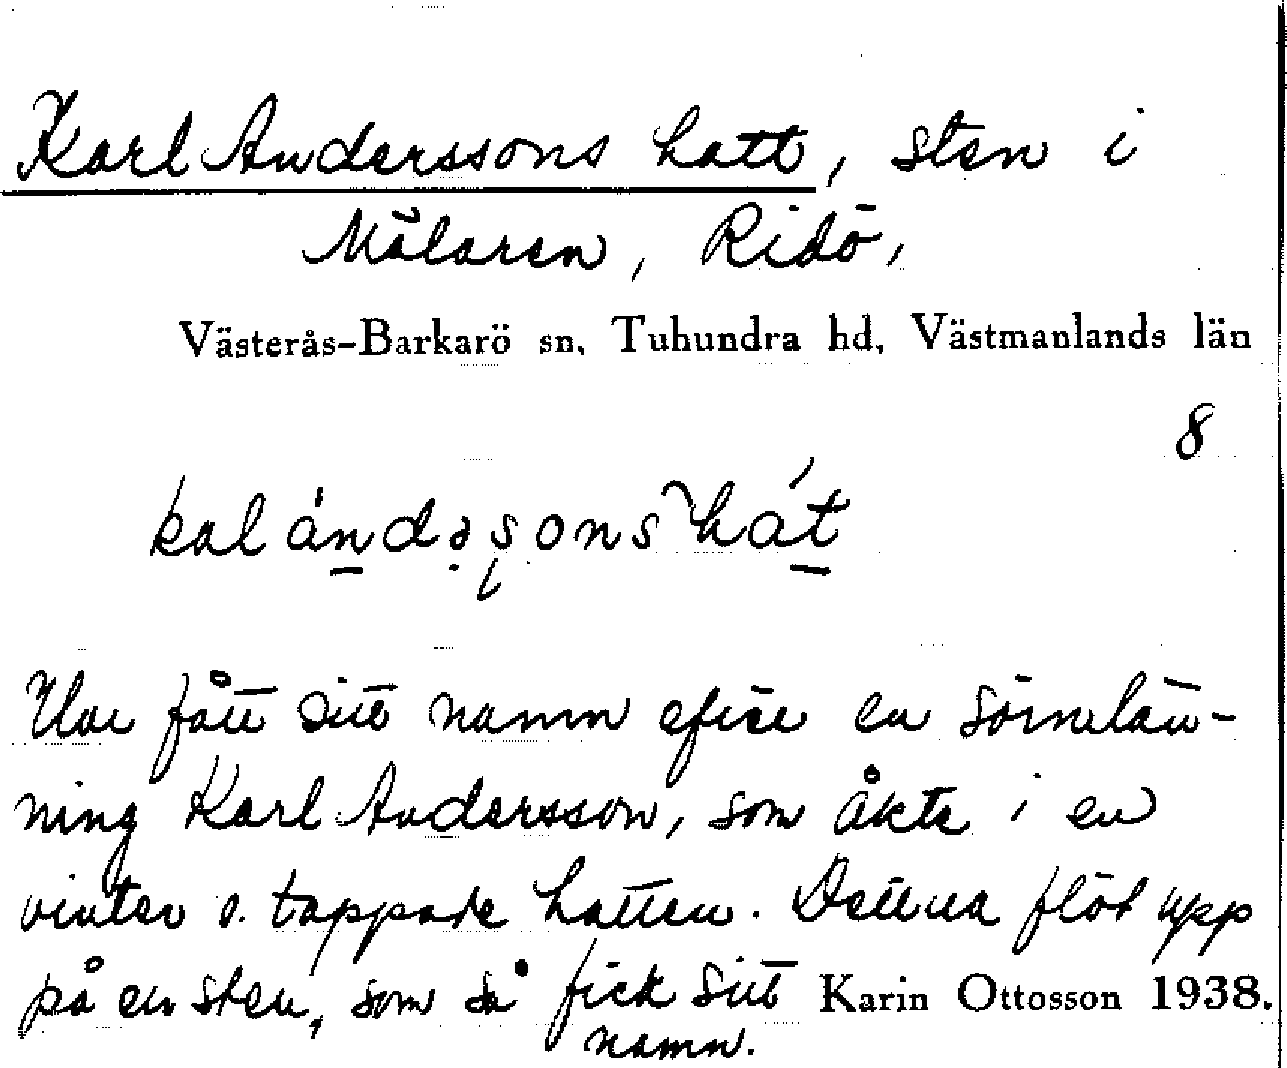 Karl Anderssons hatt, sten i
Mälaren, Ridö,
Västerås-Barkarö sn, Tuhundra hd, Västmanlands län
8
kalándəṣonshát
Har fått sitt namn efter en sörmlän-
ning Karl Andersson, som åkte i en
vinter o. tappade hatten. Denna flöt upp
på en sten, som så fick sitt Karin Ottosson 1938.
namn.